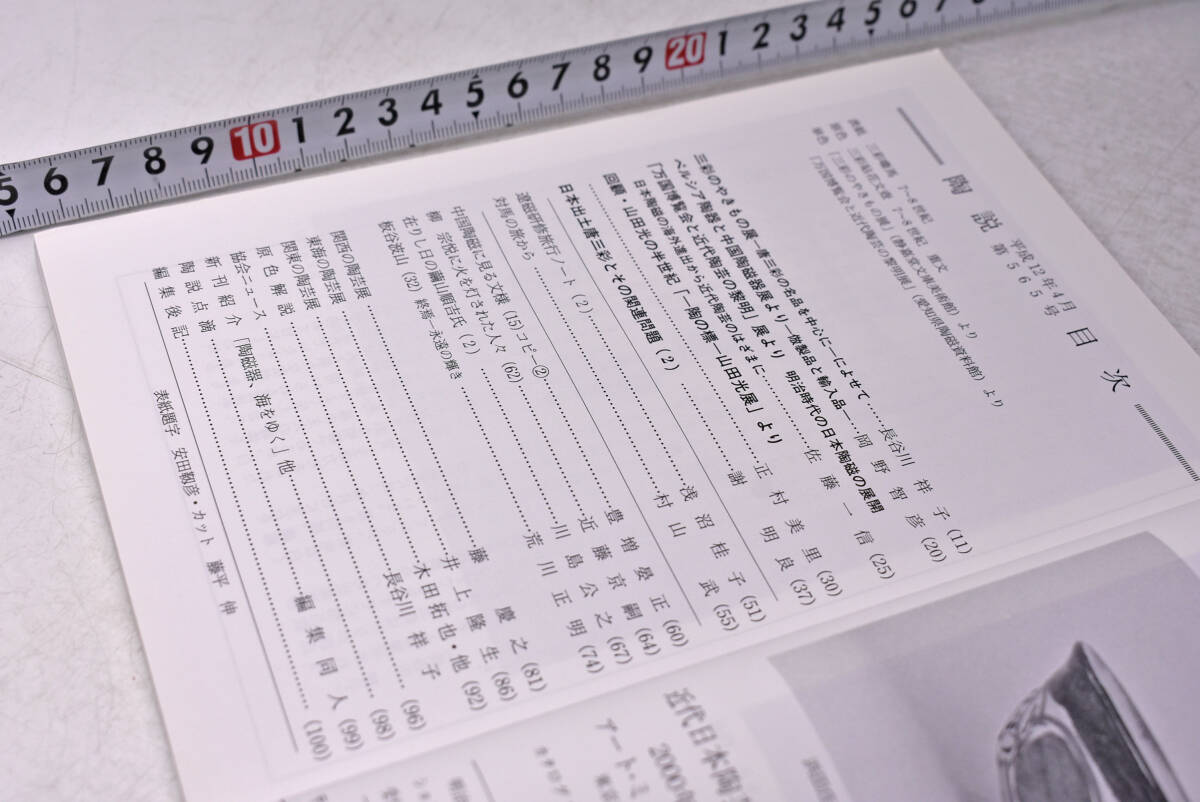 5 6 7 8 9 10 1 2 3 4 5 6 7 8 9 20 1 2 3 4 5 6 7
陶説 平成12年4月 第565号 目次
表紙 三彩 7-8世紀 重文
原色 三彩 7-8世紀 (静嘉堂文庫美術館) より
単色 「三彩のやきもの展」
「万国博覧会と近代陶芸の黎明展」 (愛知県陶磁資料館) より
三彩のやきもの展―唐三彩の名品を中心に―によせて……長谷川祥子 (11)
ペルシア陶器と中国陶磁器展より―倣製品と輸入品―…岡野智彦 (20)
「万国博覧会と近代陶芸の黎明」展より 明治時代の日本陶磁の展開
日本陶磁の海外進出から近代陶芸のはざまに……佐藤一信 (25)
回顧・山田光の半世紀「―陶の標―山田光展」より……正村美里 (30)
日本出土唐三彩とその関連問題 (2)……謝明良 (37)
対馬の旅から……浅沼桂子 (51)
遼磁研修旅行ノート (2)……村山武 (55)
中国陶磁に見る文様 (15) コピー②……豊増晏正 (60)
柳宗悦に火を灯された人々 (62)……近藤京嗣 (64)
在りし日の繭山順吉氏 (2)……川島公之 (67)
板谷波山 (32) 終焉―永遠の輝き……荒川正明 (74)
関西の陶芸展……藤慶之 (81)
東海の陶芸展……井上隆生 (86)
関東の陶芸展……木田拓也・他 (92)
原色解説……長谷川祥子
協会ニュース…… (96)
新刊紹介 「陶磁器、海をゆく」他…… (98)
陶説点滴……編集同人 (99)
編集後記…… (100)
表紙題字 安田靫彦・カット 藤平伸
近代日本陶
2000年
アート・ミ
カタログ